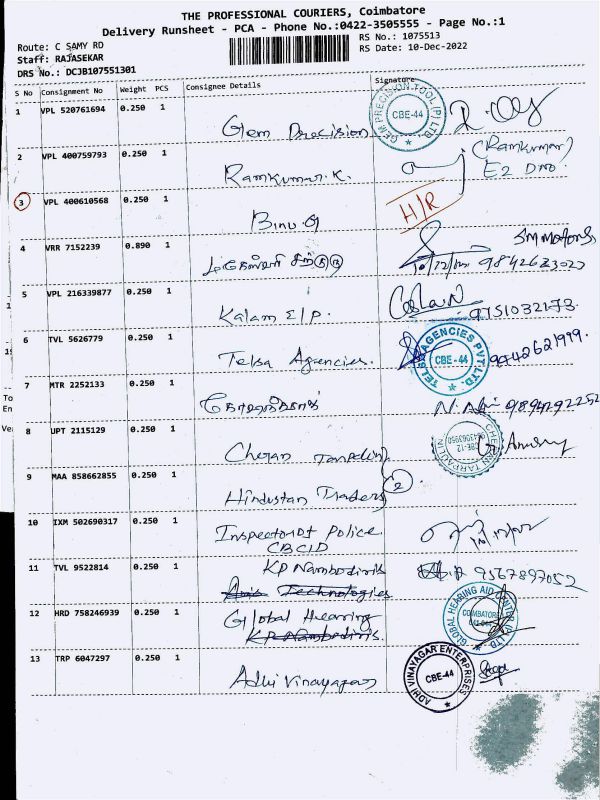 THE PROFESSIONAL COURIERS, Coimbatore
Delivery Runsheet - PCA - Phone No.:0422-3505555 - Page No.:1
Route: C SAMY RD
RS No.: 1075513
Staff: RAJASEKAR
RS Date: 10-Dec-2022
DRS No.: DCJB107551301
S No Consignment No Weight PCS Consignee Details Signature
1 VPL 520761694 0.250 1 Gem Precision
GEM PRECISION TOOL (P) LTD. CBE-44
2 VPL 400759793 0.250 1 Ramkumar.K. (Ramkumar)
3 VPL 400610568 0.250 1 Binu.G H/R
4 VRR 7152239 0.890 1 SM Motors
10/12/22 9842623023
5 VPL 216339877 0.250 1 Kalam E/P. 9751032173
6 TVL 5626779 0.250 1 Telsa Agencies. 9442621999.
TELSA AGENCIES PVT LTD. CBE-44
7 MTR 2252133 0.250 1
8 UPT 2115129 0.250 1 Chetan Tarpaulin
CHETAN TARPAULIN CBE-12
9 MAA 858662855 1 Hindustan Traders
10 IXM 502690317 0.250 1 Inspector of Police
CBCID
11 TVL 9522814 0.250 1 KP Nambodiris 9567897052
Axis Technologies
12 HRD 758246939 0.250 1 Global Hearing
KP Nambodiris.
GLOBAL HEARING AID CENTRE COIMBATORE
13 TRP 6047297 0.250 1 Adhi Vinayagar
ADHI VINAYAGAR ENTERPRISES CBE-44